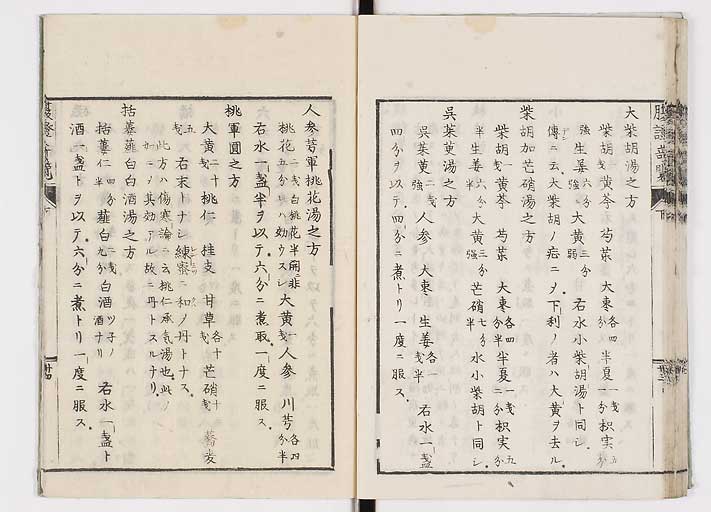 大柴胡湯之方
柴胡 黄芩 芍薬 大枣各四分 半夏一分 枳実五分
強 生姜六分強 大黄三分弱 右水小柴胡湯ト同シ
傳ニ云大柴胡ノ症ニヲ下利ノ者ハ大黄ヲ去ル
柴胡加芒硝湯之方
柴胡 黄芩 芍薬 大枣各四分半 半夏一戔二分 枳実五分
半 生姜六分強 大黄三分強 芒硝七分半 水小柴胡ト同シ
呉茱萸湯之方
呉茱萸二戔強 人参 大枣 生姜各一戔半 右水一盞
四分ヲ以テ四分ニ煮トリ一度ニ服ス
人参芎軍桃花湯之方
桃花二戔五分 白桃花半開ニ非ハ効ウスシ 大黄一戔 人参 川芎各四分半
右水一盞半ヲ以テ六分ニ煮取一度ニ服ス
桃軍圓之方
大黄二十戔 桃仁 桂支 甘草各十戔 芒硝十戔 蕎麦
五戔 右末トナシ練蜜ニ和ノ丹トナス
此方ハ傷寒論ニ云桃仁承気湯也此ノ
如ニノ其効アル故ニ丹トスルナリ
括蔞薤白白酒湯之方
括蔞仁四分半 薤白一戔九分 白酒ツ子ノ酒ナリ 右水一盞ト
酒一盞トヲ以テ六分ニ煮トリ一度ニ服ス